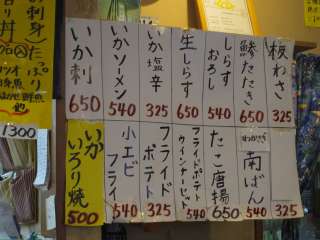 板わさ
325
鯵たたき
650
しらす
おろし
540
生しらす
650
いか塩辛
325
いかソーメン
540
いか刺
650
わかさぎ
南ばん
540
325
たこ唐揚
650
フライドポテト
ウインナーセット
540
フライド
ポテト
325
小エビ
フライ
540
いか
いろり焼
500
1300